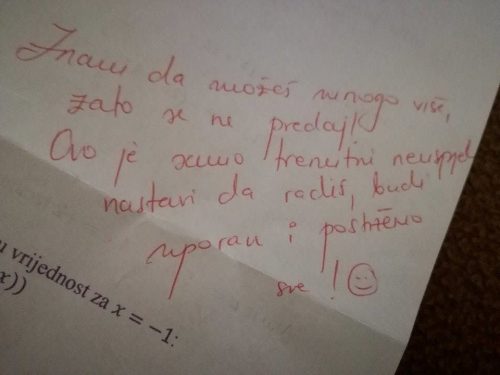 Znam da možeš mnogo više,
zato se ne predaj!
Ovo je samo trenutni neuspjeh
nastavi da radiš, budi
uporan i postižemo
sve! ☺
u vrijednost za x = −1:
x))